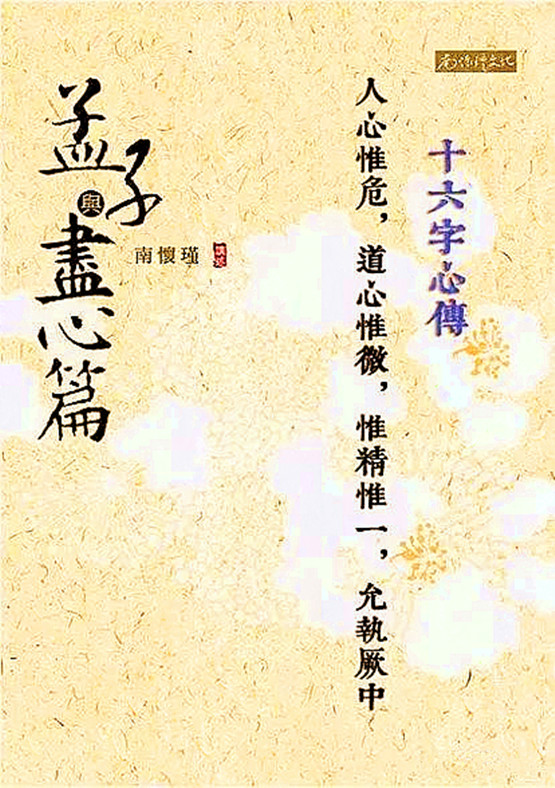 南懷瑾文化
十六字心傳
人心惟危，道心惟微，惟精惟一，允執厥中
孟子與盡心篇
南懷瑾 講述